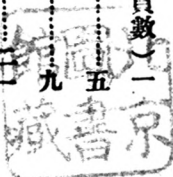 員數）一
五
九
北京
圖書
館藏